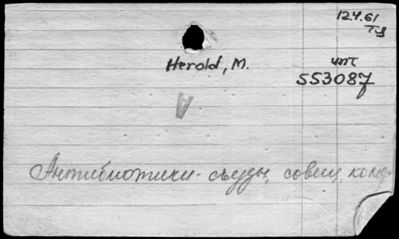 124.61
ТЗ
Herold, M.
чт
553087
A
Антибиотики - съезды, совещ., конф.